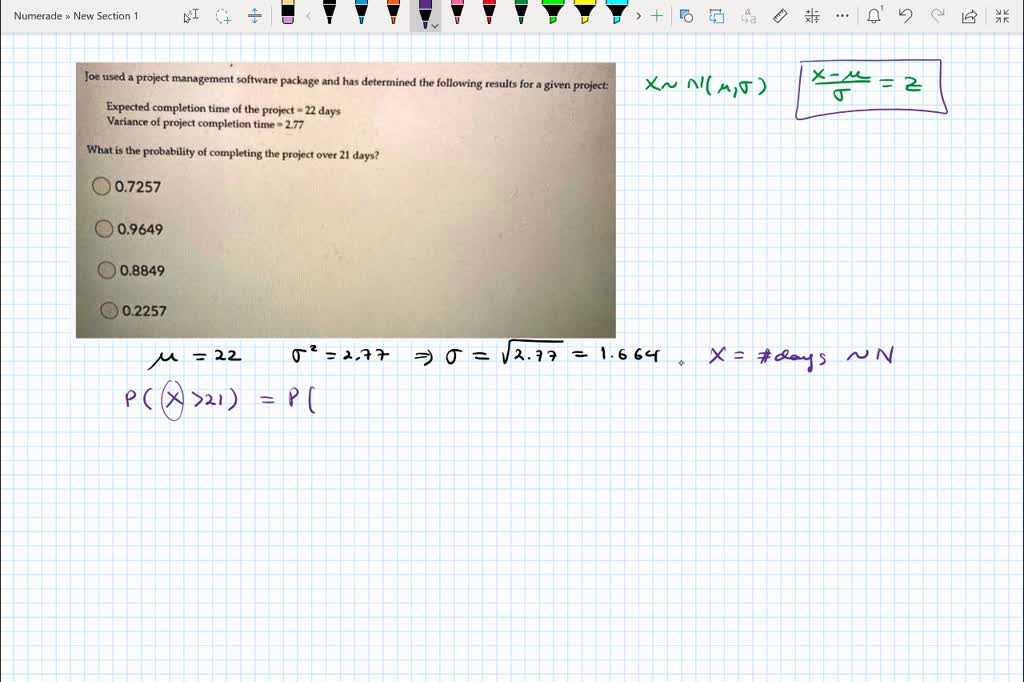 Numerade » New Section 1
Joe used a project management software package and has determined the following results for a given project:
Expected completion time of the project = 22 days
Variance of project completion time = 2.77
What is the probability of completing the project over 21 days?
0.7257
0.9649
0.8849
0.2257
X ~ N(μ,σ)
(x-μ)/σ = z
μ = 22 σ² = 2.77 ⇒ σ = √2.77 = 1.664 . X = #days ~ N
P(X >21) = P(